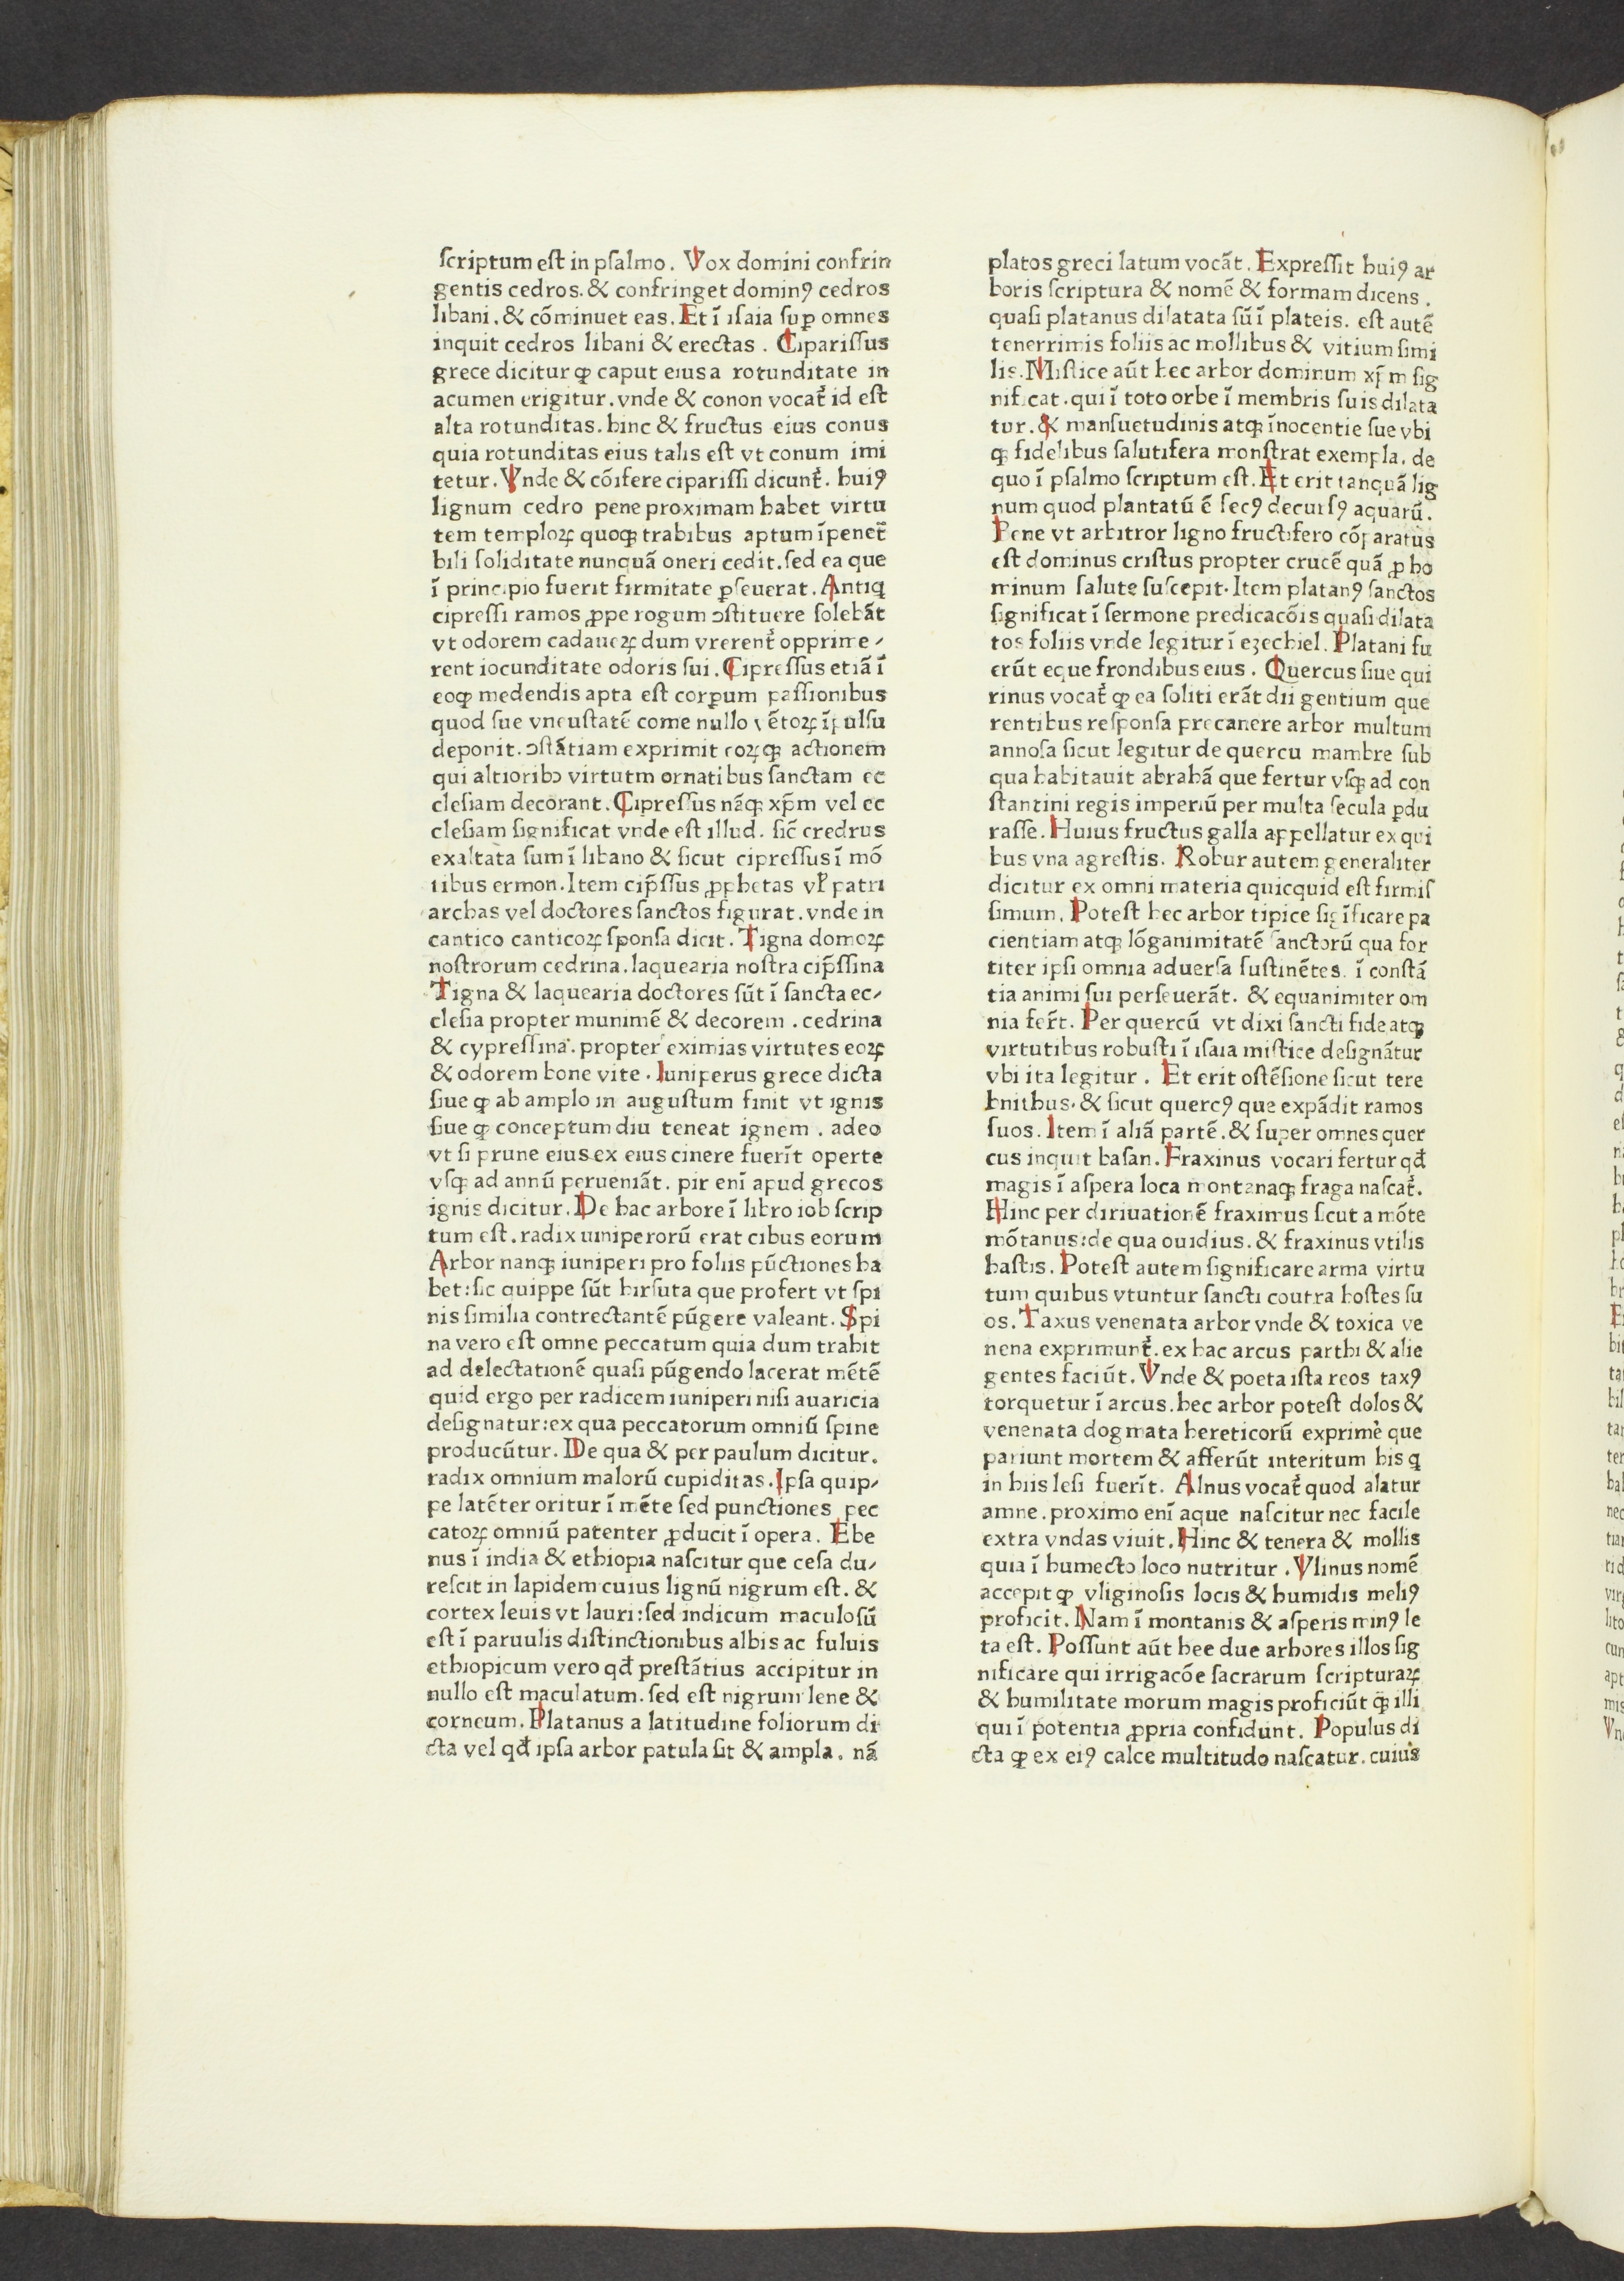 ſcriptum eſt in pſalmo. Vox domini confrin
gentis cedros. & confringet dominꝰ cedros
libani. & cōminuet eas. Et ī iſaia ſuꝑ omnes
inquit cedros libani & erectas. Cipariſſus
grece dicitur ꝙ caput eius a rotunditate in
acumen erigitur. vnde & conon vocat᷑ id eſt
alta rotunditas. hinc & fructus eius conus
quia rotunditas eius talis eſt vt conum imi
tetur. Vnde & cōifere cipariſſi dicunt᷑. huiꝰ
lignum cedro pene proximam habet virtu
tem temploꝝ quoqꝫ trabibus aptum īpenet̃
bili ſoliditate nunquā oneri cedit. ſed ea que
ī principio fuerit firmitate ꝑſeuerat. Antiq
cipreſſi ramos ꝓpe rogum ↄſtituere ſolebāt
vt odorem cadaueꝝ dum vrerent᷑ opprime⸗
rent iocunditate odoris ſui. Cipreſſus etiā ī
eoqꝫ medendis apta eſt corꝑum paſſionibus
quod ſue vneuſtatē come nullo vētoꝝ īpulſu
deponit. ↄſtātiam exprimit eoꝝqꝫ actionem
qui altioribↄ virtutm ornatibus ſanctam ec
cleſiam decorant. Cipreſſus nāqꝫ xp̄m vel ec
cleſiam ſignificat vnde eſt illud. ſic̄ credrus
exaltata ſum ī libano & ſicut cipreſſus ī mō
tibus ermon. Item cip̄ſſus ꝓphetas vꝉ patri
archas vel doctores ſanctos figurat. vnde in
cantico canticoꝝ ſponſa dicit. Tigna domoꝝ
noſtrorum cedrina. laquearia noſtra cip̄ſſina
Tigna & laquearia doctores ſūt ī ſancta ec⸗
cleſia propter munimē & decorem. cedrina
& cypreſſina. propter eximias virtutes eoꝝ
& odorem bone vite. Iuniperus grece dicta
ſiue ꝙ ab amplo in auguſtum finit vt ignis
ſiue ꝙ conceptum diu teneat ignem. adeo
vt ſi prune eius ex eius cinere fuerīt operte
vſqꝫ ad annū perueniāt. pir enī apud grecos
ignis dicitur. De hac arbore ī libro iob ſcrip
tum eſt. radix uiniperorū erat cibus eorum
Arbor nanqꝫ iuniperi pro foliis pūctiones ha
bet: ſic quippe ſūt hirſuta que profert vt ſpi
nis ſimilia contrectantē pūgere valeant. Spi
na vero eſt omne peccatum quia dum trahit
ad delectationē quaſi pūgendo lacerat mētē
quid ergo per radicem iuniperi niſi auaricia
deſignatur: ex qua peccatorum omniū ſpine
producūtur. De qua & per paulum dicitur.
radix omnium malorū cupiditas. Ipſa quip⸗
pe latēter oritur ī mēte ſed punctiones pec
catoꝝ omniū patenter ꝓducit ī opera. Ebe
nus ī india & ethiopia naſcitur que ceſa du⸗
reſcit in lapidem cuius lignū nigrum eſt. &
cortex leuis vt lauri: ſed indicum maculoſū
eſt ī paruulis diſtinctionibus albis ac fuluis
ethiopicum vero qđ preſtātius accipitur in
nullo eſt maculatum. ſed eſt nigrum lene &
corneum. Platanus a latitudine foliorum di
cta vel qđ ipſa arbor patula ſit & ampla. nā
platos greci latum vocāt. Expreſſit huiꝰ ar
boris ſcriptura & nomē & formam dicens.
quaſi platanus dilatata ſū ī plateis. eſt autē
tenerrimis foliis ac mollibus & vitium ſimi
lis. Miſtice aūt hec arbor dominum xp̄m ſig
nificat. qui ī toto orbe ī membris ſuis dilata
tur. & manſuetudinis atqꝫ īnocentie ſue vbi
qꝫ fidelibus ſalutifera monſtrat exempla. de
quo ī pſalmo ſcriptum eſt. Et erit tanquā lig
num quod plantatū ē ſecꝰ decurſꝰ aquarū.
Pene vt arbitror ligno fructifero cōparatus
eſt dominus criſtus propter crucē quā ꝓ ho
minum ſalute ſuſcepit. Item platanꝰ ſanctos
ſignificat ī ſermone predicacōis quaſi dilata
tos foliis vnde legitur ī ezechiel. Platani fu
erūt eque frondibus eius. Quercus ſiue qui
rinus vocat᷑ ꝙ ea ſoliti erāt dii gentium que
rentibus reſponſa precanere arbor multum
annoſa ſicut legitur de quercu mambre ſub
qua habitauit abrahā que fertur vſqꝫ ad con
ſtantini regis imperiū per multa ſecula ꝑdu
raſſe. Huius fructus galla appellatur ex qui
bus vna agreſtis. Robur autem generaliter
dicitur ex omni materia quicquid eſt firmiſ
ſimum. Poteſt hec arbor tipice ſigīficare pa
cientiam atqꝫ lōganimitatē ſanctorū qua for
titer ipſi omnia aduerſa ſuſtinētes. ī conſtā
tia animi ſui perſeuerāt. & equanimiter om
nia fer̄t. Per quercū vt dixi ſancti fide atqꝫ
virtutibus robuſti ī iſaia miſtice deſignātur
vbi ita legitur. Et erit oſtēſione ſicut tere
bnithus. & ſicut quercꝰ que expādit ramos
ſuos. Item ī aliā partē. & ſuper omnes quer
cus inquit baſan. Fraxinus vocari fertur qđ
magis ī aſpera loca montanaqꝫ fraga naſcat᷑.
Hinc per diriuationē fraximus ſicut a mōte
mōtanus: de qua ouidius. & fraxinus vtilis
haſtis. Poteſt autem ſignificare arma virtu
tum quibus vtuntur ſancti coutra hoſtes ſu
os. Taxus venenata arbor vnde & toxica ve
nena exprimunt᷑. ex hac arcus parthi & alie
gentes faciūt. Vnde & poeta iſta reos taxꝰ
torquetur ī arcus. hec arbor poteſt dolos &
venenata dogmata hereticorū exprimē que
pariunt mortem & afferūt interitum his q
in hiis leſi fuerīt. Alnus vocat᷑ quod alatur
amne. proximo enī aque naſcitur nec facile
extra vndas viuit. Hinc & tenera & mollis
quia ī humecto loco nutritur. Vlinus nomē
accepit ꝙ vliginoſis locis & humidis meliꝰ
proficit. Nam ī montanis & aſperis minꝰ le
ta eſt. Poſſunt aūt hee due arbores illos ſig
nificare qui irrigacōe ſacrarum ſcripturaꝝ
& humilitate morum magis proficiūt q̄ illi
qui ī potentia ꝓpria confidunt. Populus di
cta ꝙ ex eiꝰ calce multitudo naſcatur. cuius